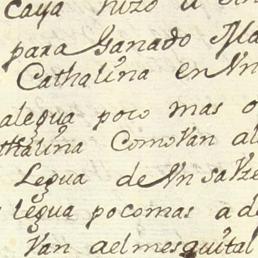 caya hizo
para Ganado Ma
Cathalina en Vn
alegua poco mas o
thalina Como Van al
Legua de Vn sauze
legua poco mas a de
Van a el mesquital